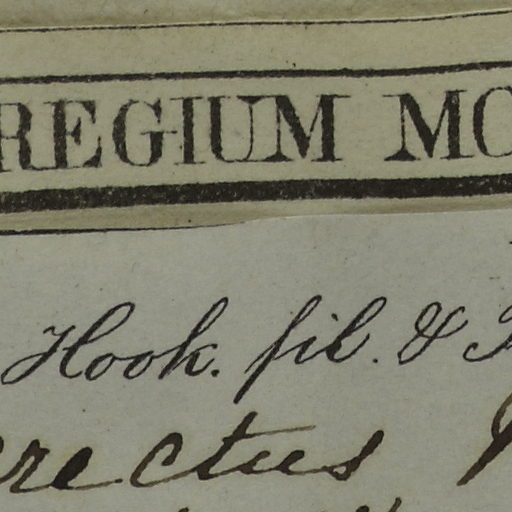 REGIUM MO
Hook. fil. &
erectus